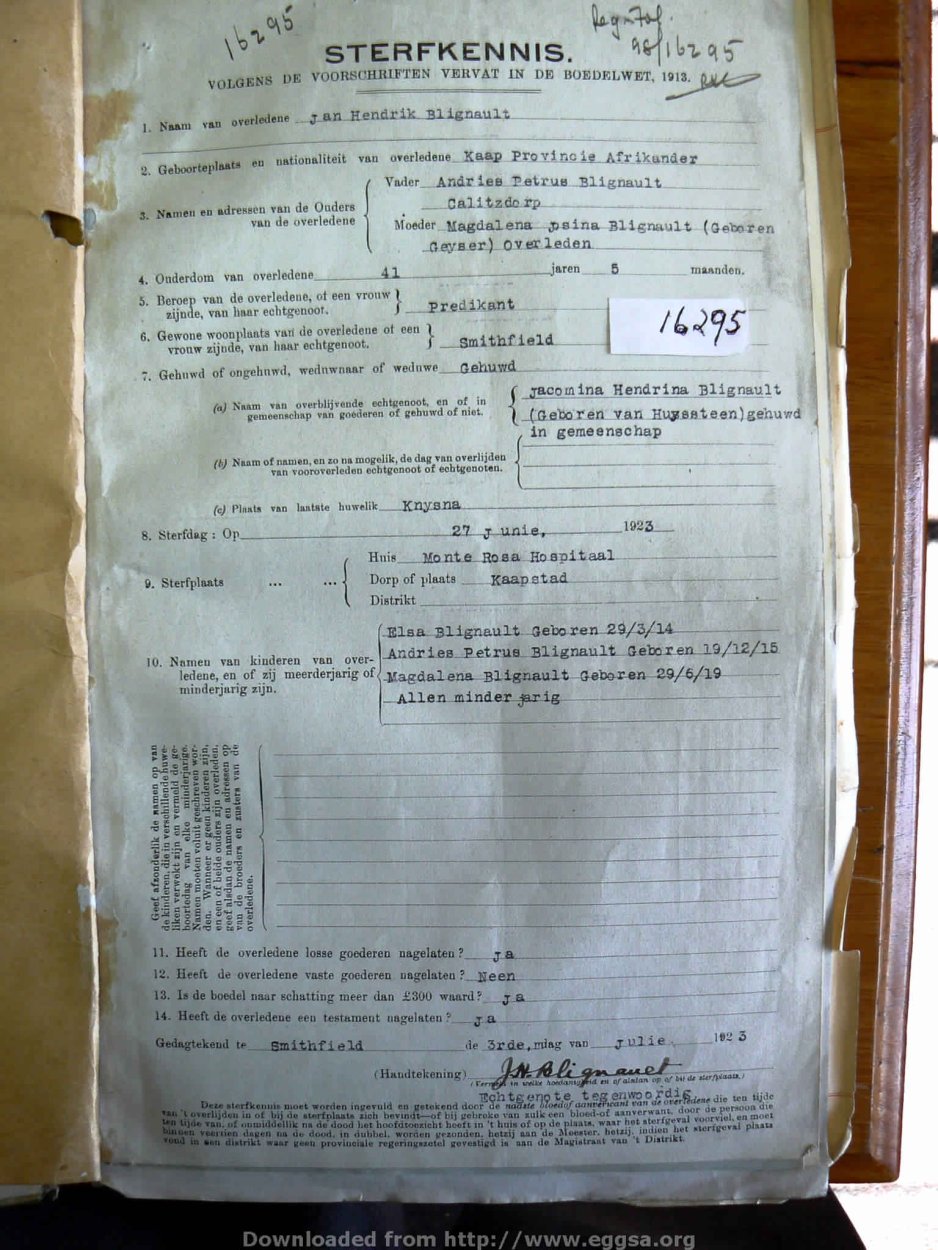 16295
98/16295
STERFKENNIS.
VOLGENS DE VOORSCHRIFTEN VERVAT IN DE BOEDELWET, 1913.
1. Naam van overledene Jan Hendrik Blignault
2. Geboorteplaats en nationaliteit van overledene Kaap Provincie Afrikander
3. Namen en adressen van de Ouders van de overledene
Vader Andries Petrus Blignault
Calitzdorp
Moeder Magdalena Jpsina Blignault (Geboren
Geyser) Overleden
4. Ouderdom van overledene 41 jaren 5 maanden.
5. Beroep van de overledene, of een vrouw
zijnde, van haar echtgenoot. Predikant
16295
6. Gewone woonplaats van de overledene of een
vrouw zijnde, van haar echtgenoot. Smithfield
7. Gehuwd of ongehuwd, weduwnaar of weduwe Gehuwd
(a) Naam van overblijvende echtgenoot, en of in
gemeenschap van goederen of gehuwd of niet.
Jacomina Hendrina Blignault
(Geboren van Huyssteen)gehuwd
in gemeenschap
(b) Naam of namen, en zo na mogelik, de dag van overlijden
van vooroverleden echtgenoot of echtgenoten.
(c) Plaats van laatste huwelik Knysna
8. Sterfdag : Op 27 Junie, 1923
9. Sterfplaats ... ...
Huis Monte Rosa Hospitaal
Dorp of plaats Kaapstad
Distrikt
10. Namen van kinderen van over-
ledene, en of zij meerderjarig of
minderjarig zijn.
Elsa Blignault Geboren 29/3/14
Andries Petrus Blignault Geboren 19/12/15
Magdalena Blignault Geboren 29/6/19
Allen minder jarig
Geef afzonderlik de namen op van
de kinderen, die in verschillende huwe-
liken verwekt zijn en vermeld de ge-
boortedag van elke minderjarige.
Namen moeten voluit geschreven wor-
den. Wanneer er geen kinderen zijn,
en een of beide ouders zijn overleden,
geef alsdan de namen en adressen op
van de broeders en zusters van de
overledene.
11. Heeft de overledene losse goederen nagelaten? Ja
12. Heeft de overledene vaste goederen nagelaten? Neen
13. Is de boedel naar schatting meer dan £300 waard? Ja
14. Heeft de overledene een testament nagelaten? Ja
Gedagtekend te Smithfield de 3rde, mdag van Julie, 1923
(Handtekening) J.H. Blignault
(Vermeld in welke hoedanigheid en of alsdan op of bij de sterfplaats.)
Echtgenote tegenwoordig
Deze sterfkennis moet worden ingevuld en getekend door de naaste bloed of aanverwant van de overledene die ten tijde
van 't overlijden in of bij de sterfplaats zich bevindt—of bij gebreke van zulk een bloed-of aanverwant, door de persoon die
ten tijde van, of onmiddellik na de dood het hoofdtoezicht heeft in 't huis of op de plaats, waar het sterfgeval voorviel, en moet
binnen veertien dagen na de dood, in dubbel, worden gezonden, hetzij aan de Meester, hetzij, indien het sterfgeval plaats
vond in een distrikt waar geen provinciale regeringszetel gevestigd is aan de Magistraat van 't Distrikt.
Downloaded from http://www.eggsa.org